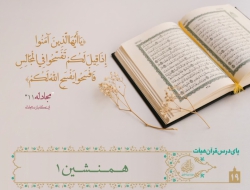 «یا أَیُّهَا الَّذِینَ آمَنُوا
إِذا قِیلَ لَکُمْ تَفَسَّحُوا فِی الْمَجالِسِ
فَافْسَحُوا یَفْسَحِ اللهُ لَکُمْ»
مجادله ۱۱
پای درس قرآن حیات
همنشین ۱